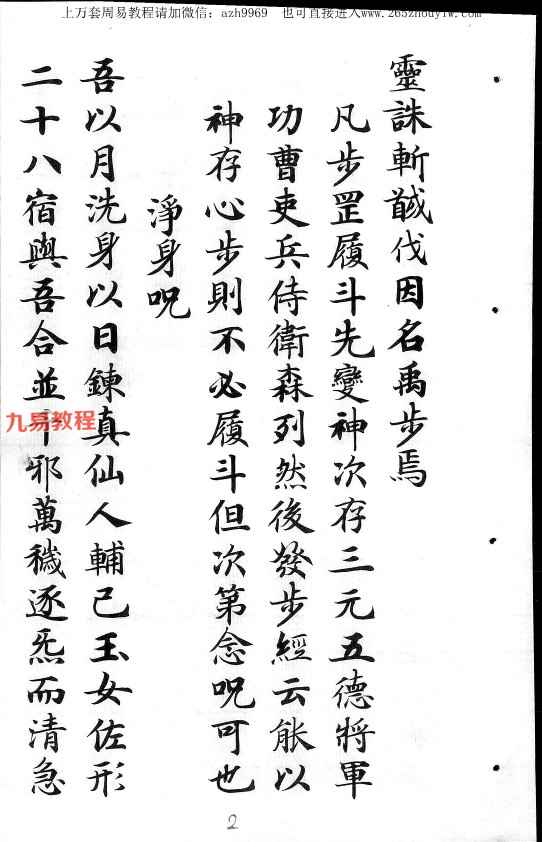 上万套周易教程请加微信：azh9969 也可直接进入www.265zhouyiw.com
靈誅斬馘伐因名禹步焉
凡步罡履斗先變神次存三元五德將軍
功曹吏兵侍衛森列然後發步經云能以
神存心步則不必履斗但次第念呪可也
淨身呪
吾以月洗身以日鍊真仙人輔己玉女佐形
二十八宿與吾合並千邪萬穢逐炁而清急
九易教程
2